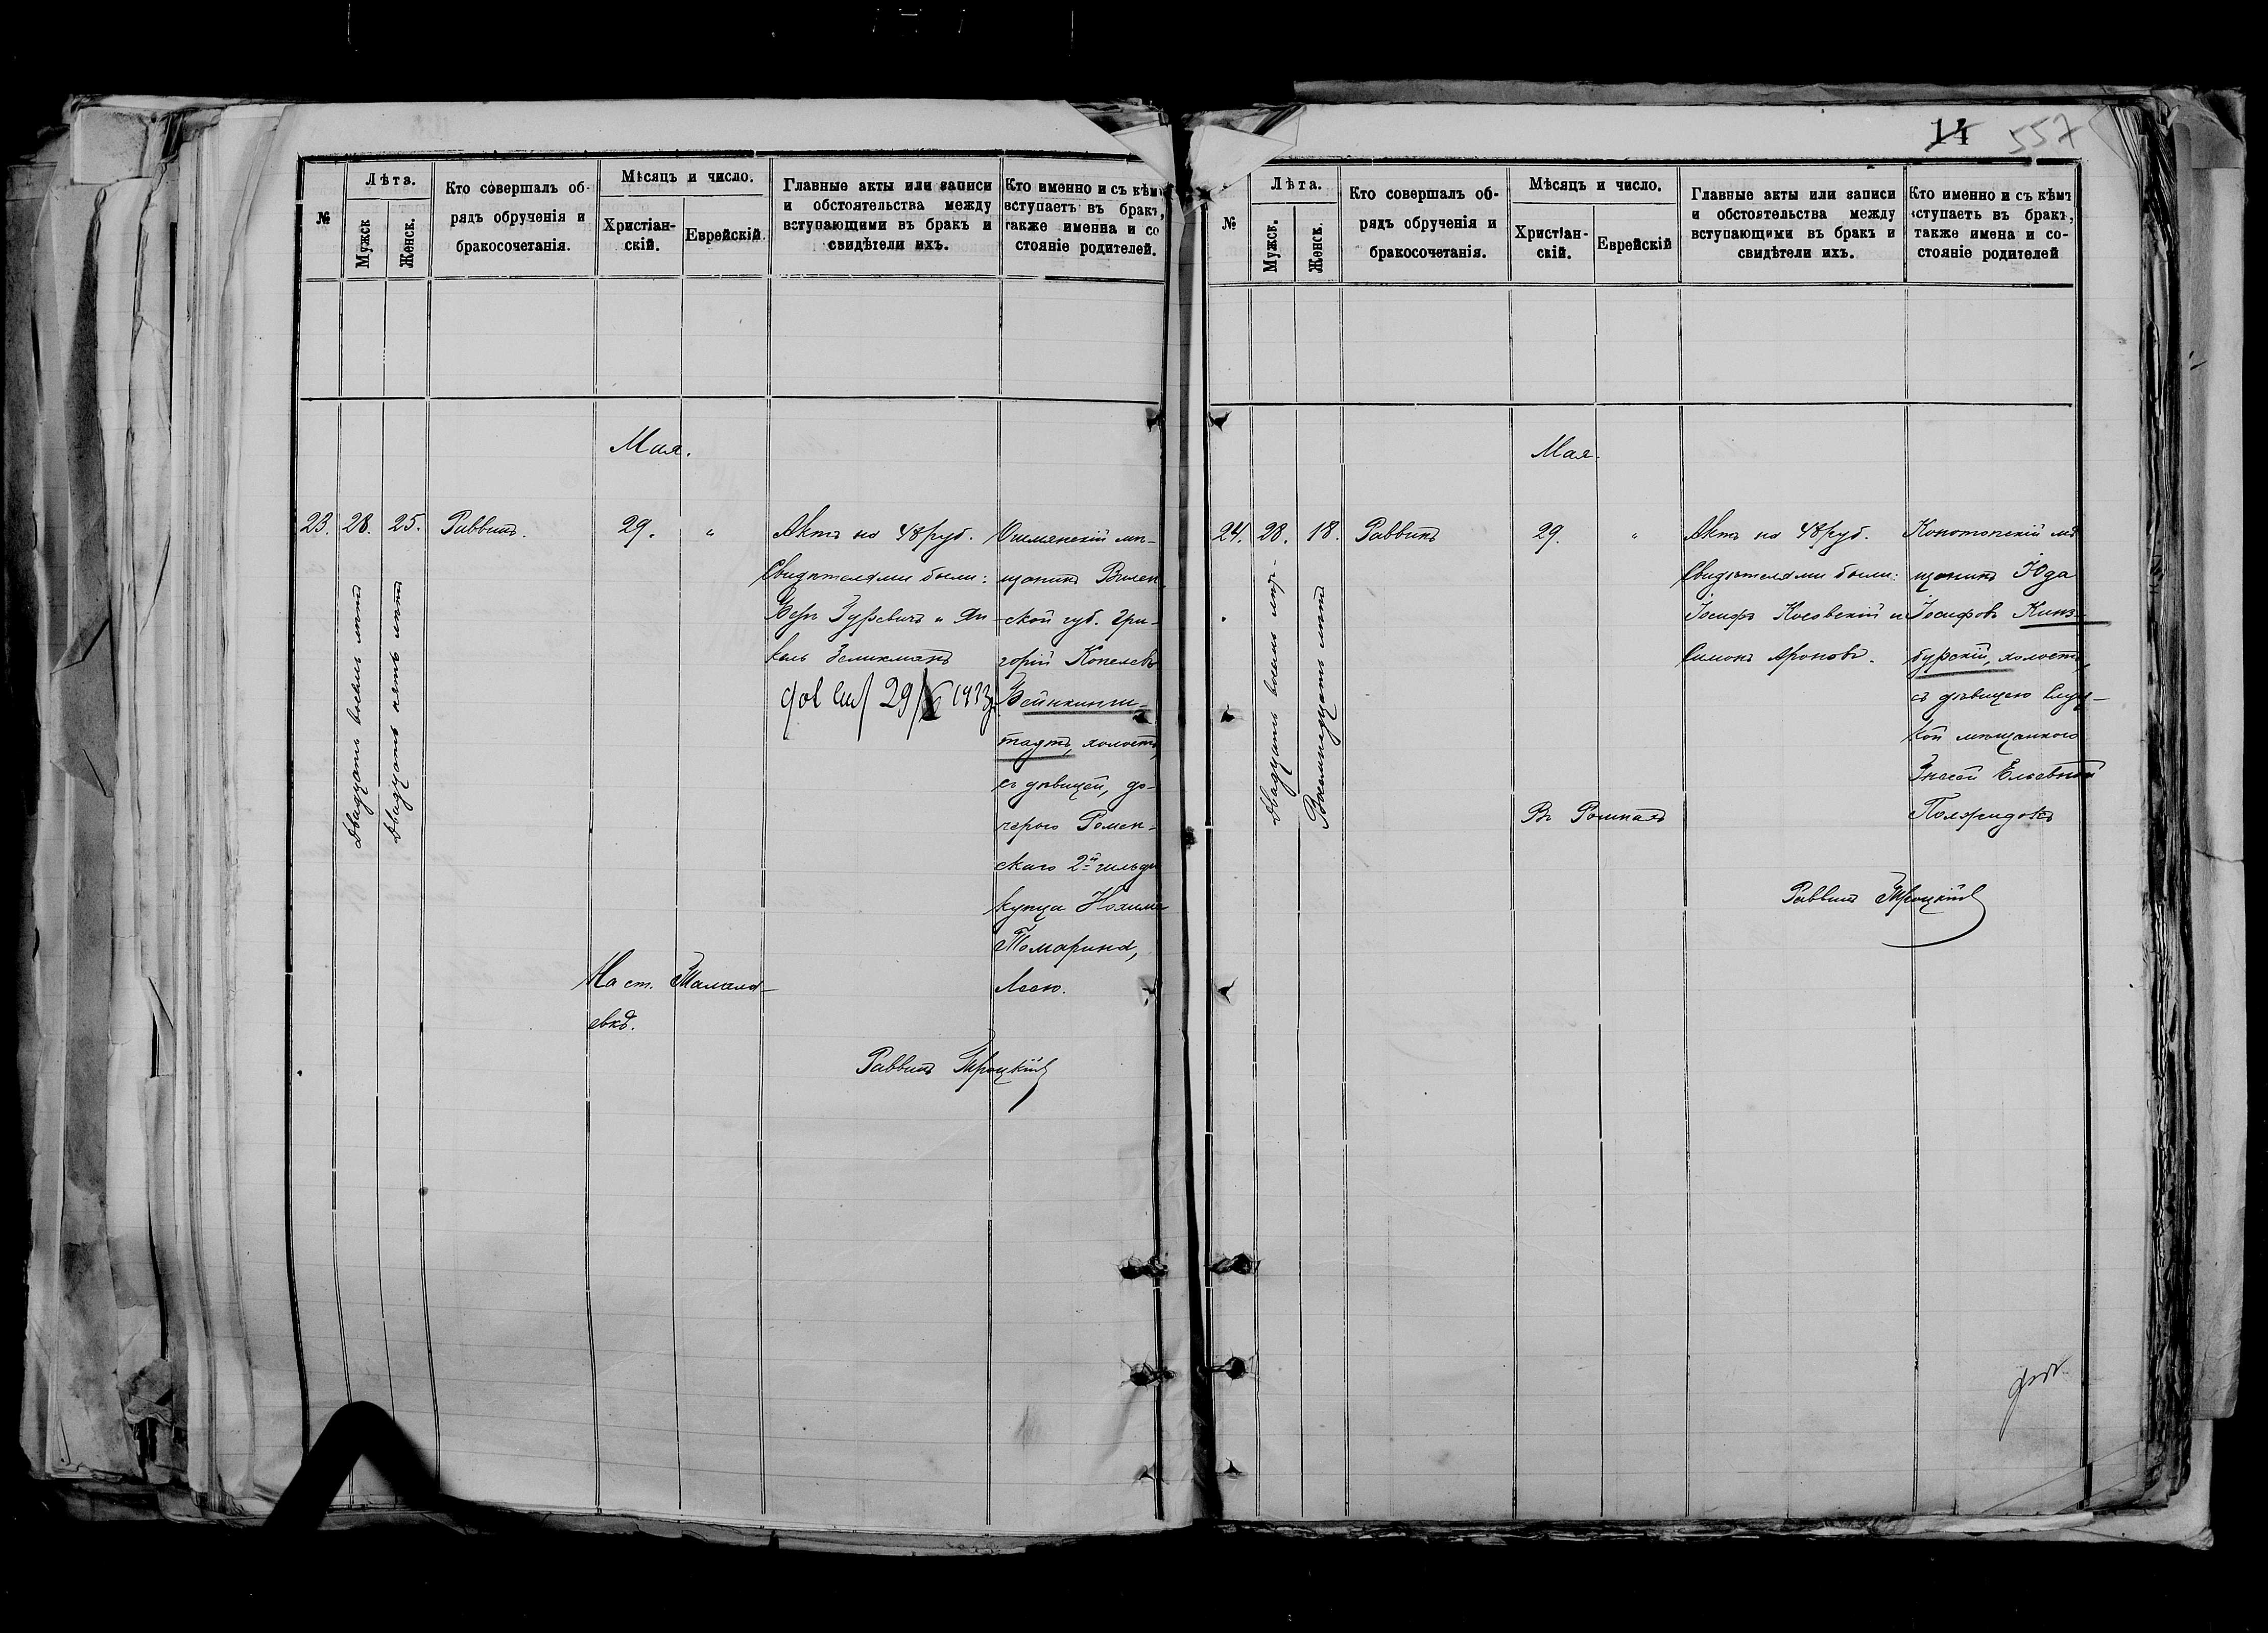 №
Лѣта.
Мужск
Женск.
Кто совершалъ об-
рядъ обрученія и
бракосочетанія.
Мѣсяцъ и число.
Христіан-
скій.
Еврейскій.
Главные акты или записи
и обстоятельства между
вступающими въ бракъ и
свидѣтели ихъ.
Кто именно и съ кѣмъ
вступаетъ въ бракъ,
также именна и со
стояніе родителей.
Мая.
23. 28. 25. Раввинъ. 29. "
Двадцать восемь лѣтъ
Двадцать пять лѣтъ
Актъ на 48 руб.
Свидѣтелями были:
Беръ Гурсвичъ и Ян-
кель Зеликманъ
29/X 1933г.
Ошмянскій мѣ-
щанинъ Вилен
ской губ. Гри-
горій Копелевъ
Вейнкинш-
тадтъ, холостъ,
съ дѣвицей, до-
черью Ромен-
скаго 2й гильди
купца Нохима
Томарина,
Асею.
На ст. Талала-
евкѣ.
Раввинъ Троцкій
14 557
№
Лѣта.
Мужск.
Женск.
Кто совершалъ об-
рядъ обрученія и
бракосочетанія.
Мѣсяцъ и число.
Христіан-
скій.
Еврейскій
Главные акты или записи
и обстоятельства между
вступающими въ бракъ и
свидѣтели ихъ.
Кто именно и съ кѣмъ
вступаетъ въ бракъ,
также имена и со-
стояніе родителей
Мая.
24. 28. 18. Раввинъ 29. "
Двадцать восемь лѣт-
Восемнадцать лѣтъ
Актъ на 48 руб.
Свидѣтелями были:
Іосифъ Косовскій и
Симонъ Ароновъ.
Конотопскій мѣ
щанинъ Юда
Іосифовъ Кинз-
бурскій, холостъ,
съ дѣвицею
мѣщанкою
Ельевной
Въ Ромнахъ
Раввинъ Троцкій